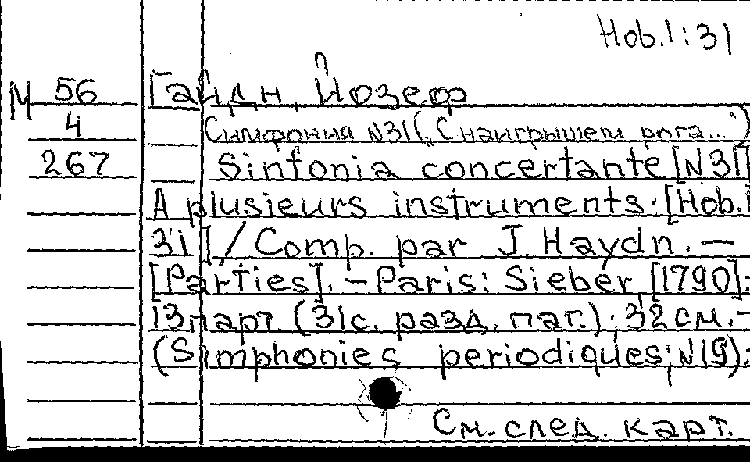 Hob.I:31
М 56 Гайдн, Йозеф
4 Симфония N31 („С наигрышем рога...")
267 Sinfonia concertante [N31]
A plusieurs instruments. [Hob.I
31] / Comp. par J. Haydn. —
[Parties]. — Paris: Sieber, [1790].
13 парт (31с. разд. паг.). 32 см. —
(Simphonies periodiques; N19).
См. след. карт.